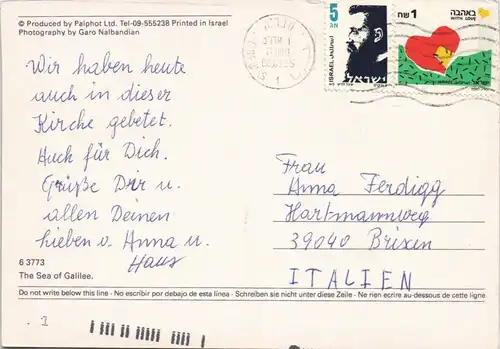 © Produced by Palphot Ltd. Tel-09-555238 Printed in Israel
Photography by Garo Nalbandian
5
אג
ISRAEL
ישראל
1 שח
באהבה
WITH LOVE
Wir haben heute
auch in dieser
Kirche gebetet.
Auch für Dich.
Grüße Dir u.
allen Deinen
lieben v. Anna u.
Hans
Frau
Anna Ferdigg
Hartmannweg
39040 Brixen
ITALIEN
6 3773
The Sea of Galilee.
Do not write below this line · No escribir por debajo de esta línea · Schreiben sie nicht unter diese Zeile · Ne rien ecrire au-dessous de cette ligne